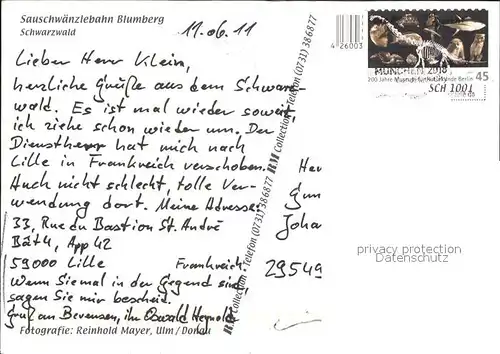 Sauschwänzlebahn Blumberg
Schwarzwald
11.06.11
Lieber Herr Klein,
herzliche Grüße aus dem Schwarz
wald. Es ist mal wieder soweit,
ich ziehe schon wieder um. Der
Dienstherr hat mich nach
Lille in Frankreich verschoben.
Auch nicht schlecht, tolle Ver-
wendung dort. Meine Adresse:
33, Rue du Bastion St. André
Bât 4, App 42
59000 Lille Frankreich.
Wenn Sie mal in der Gegend sind,
sagen Sie mir bescheid.
Gruß an Bevensen, ihr Oswald
Fotografie: Reinhold Mayer, Ulm/Donau
RM Collection • Telefon (0731) 386877
RM Collection • Telefon (0731) 386877
4 26003
MÜNCHEN 2018
200 Jahre Museum für Naturkunde Berlin
45
SCH 1001
Her
Gun
Joha
29549
privacy protection
Datenschutz